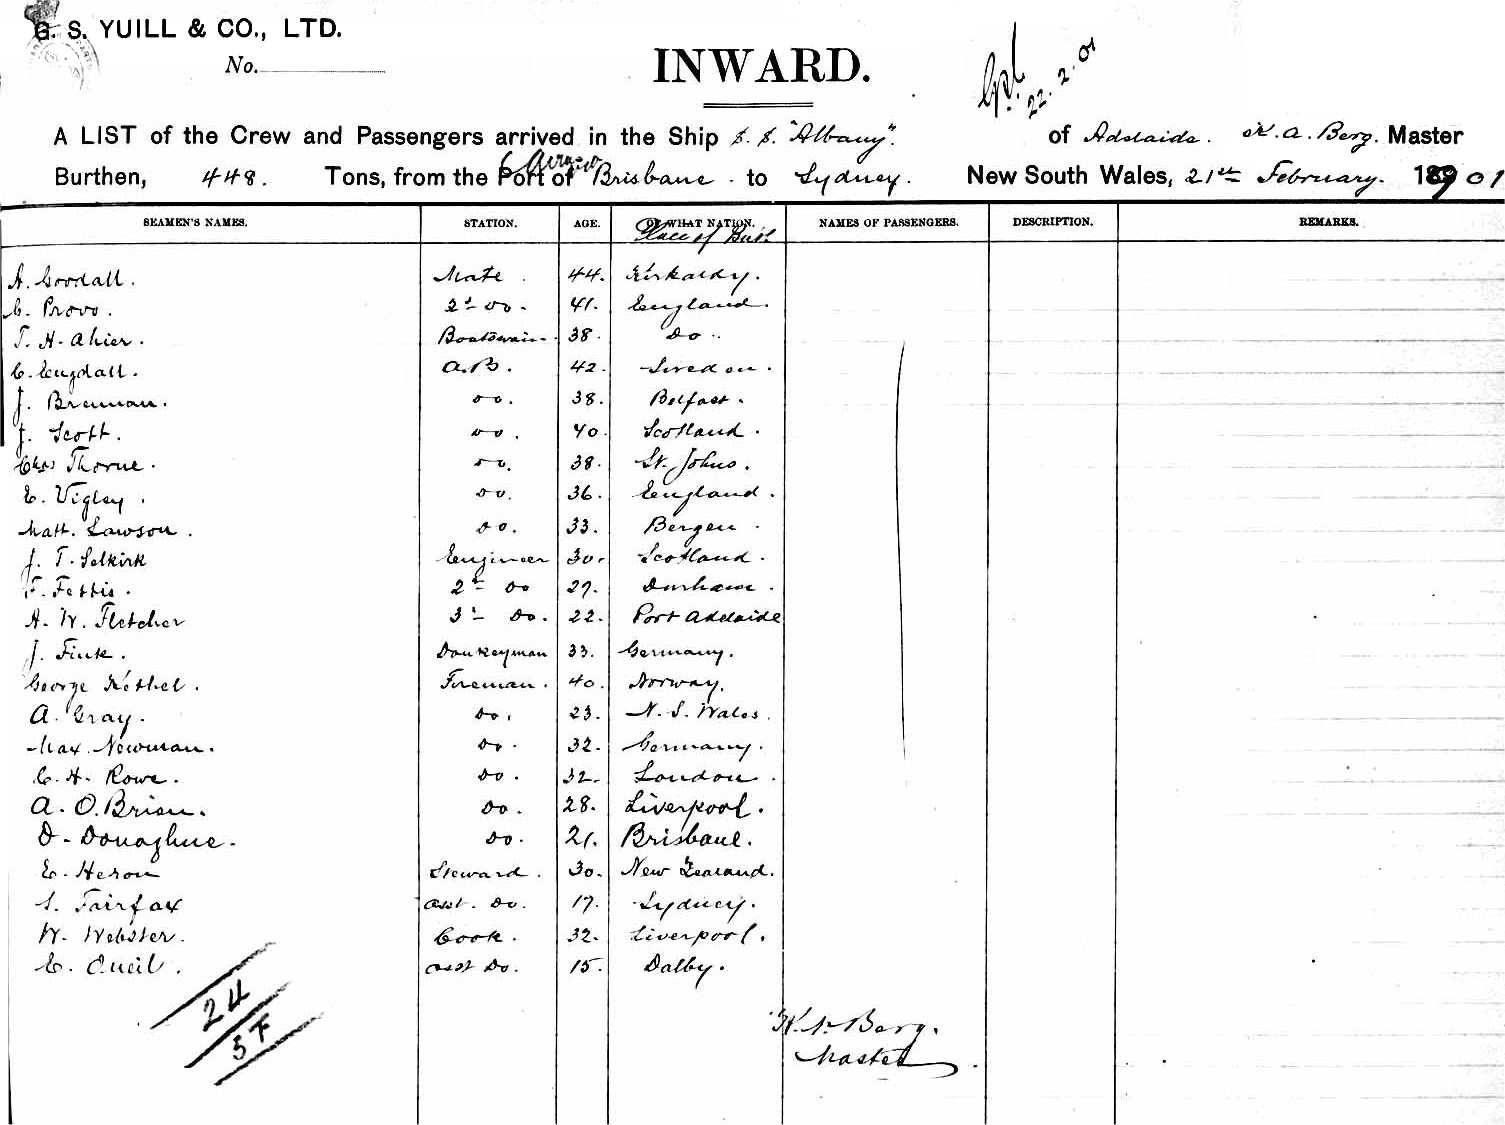 G. S. YUILL & CO., LTD.
No.
INWARD.
22.2.01
A LIST of the Crew and Passengers arrived in the Ship S.S. "Albany". of Adelaide. K. A. Berg. Master
Burthen, 448. Tons, from the Port of Brisbane. to Sydney. New South Wales, 21st February. 1901
SEAMEN'S NAMES. STATION. AGE. OF WHAT NATION. NAMES OF PASSENGERS. DESCRIPTION. REMARKS.
Place of Birth
A. Goodall. Mate. 44. Kirkaldy.
C. Provo. 2nd do. 41. England.
T. H. Ahier. Boatswain. 38. Do.
C. Engdall. A.B. 42. Sweden.
J. Brennan. do. 38. Belfast.
J. Scott. do. 40. Scotland.
Chas Thorne. do. 38. St. Johns.
E. Vigley. do. 36. England.
Matt. Lawson. do. 33. Bergen.
J. T. Selkirk Engineer 30. Scotland.
F. Fettis. 2nd do 27. Durham.
A. W. Fletcher 3rd Do. 22. Port Adelaide
J. Fink. Donkeyman 33. Germany.
George Kethel. Fireman. 40. Norway.
A. Gray. Do. 23. N. S. Wales.
Max Newman. Do. 32. Germany.
C. H. Rowe. Do. 32. London.
A. O.Brien. Do. 28. Liverpool.
D. Donaghue. Do. 21. Brisbane.
E. Heron Steward. 30. New Zealand.
S. Fairfax asst. Do. 17. Sydney.
W. Webster. Cook. 32. Liverpool.
C. Oneil. asst Do. 15. Dalby.
24
K. A. Berg.
Master